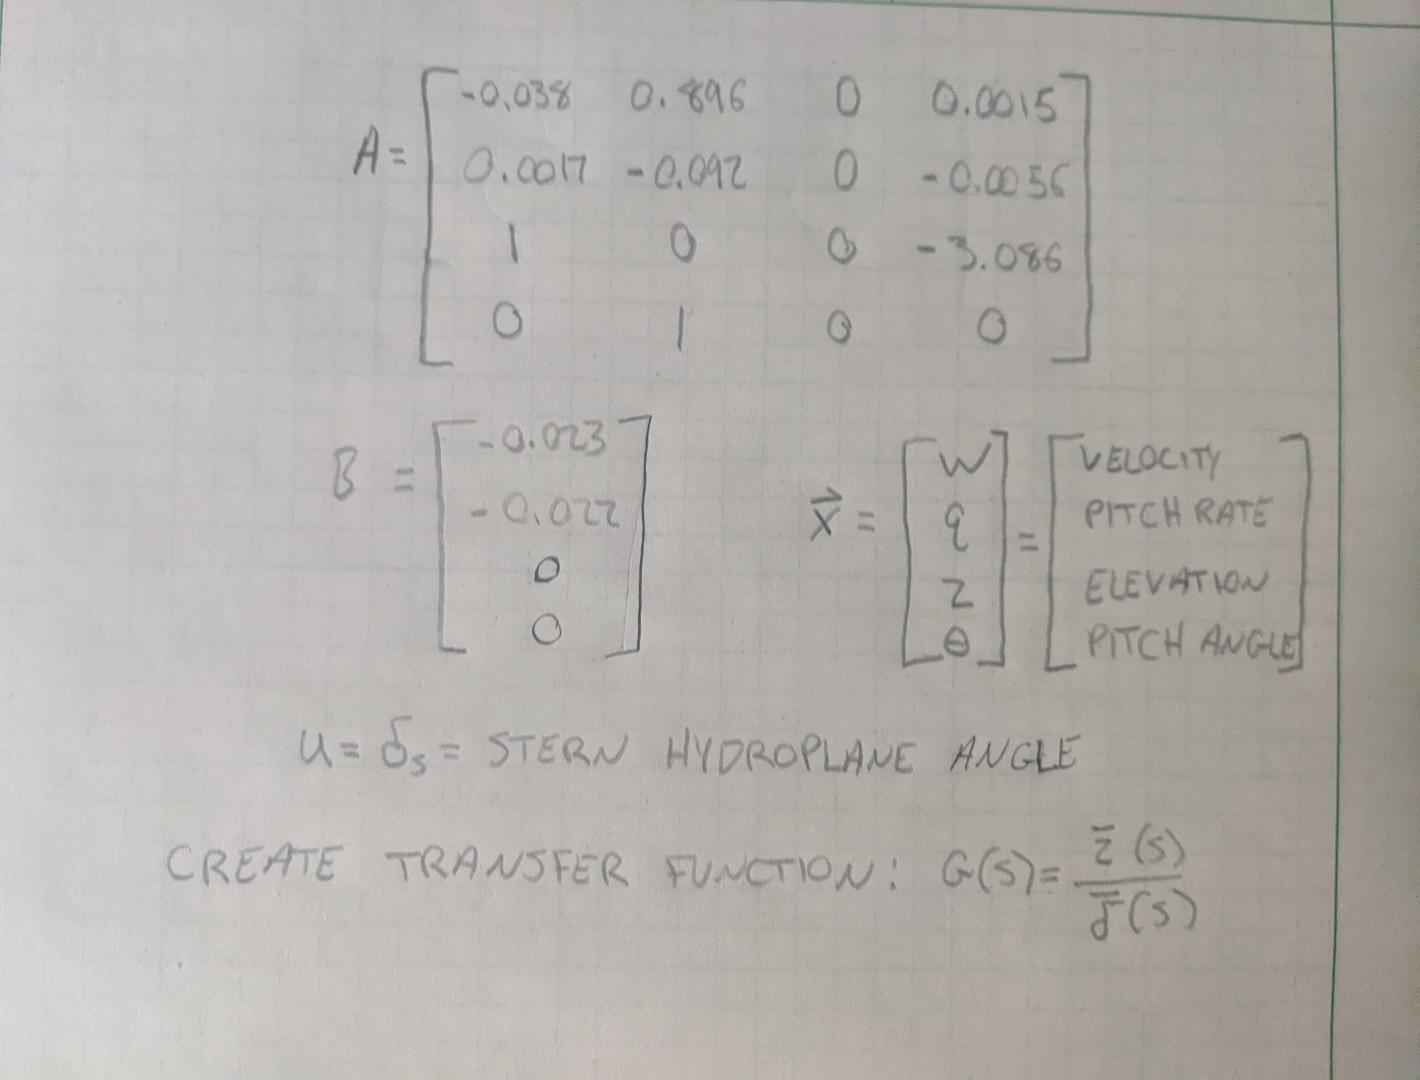 -0.038 0.896 0 0.0015
A= 0.0017 -0.092 0 -0.0056
1 0 0 -3.086
0 1 0 0
B = -0.023
-0.022
0
0
x⃗ = w = VELOCITY
q PITCH RATE
z ELEVATION
θ PITCH ANGLE
u= δs = STERN HYDROPLANE ANGLE
CREATE TRANSFER FUNCTION: G(s)= z̄(s)
δ̄(s)